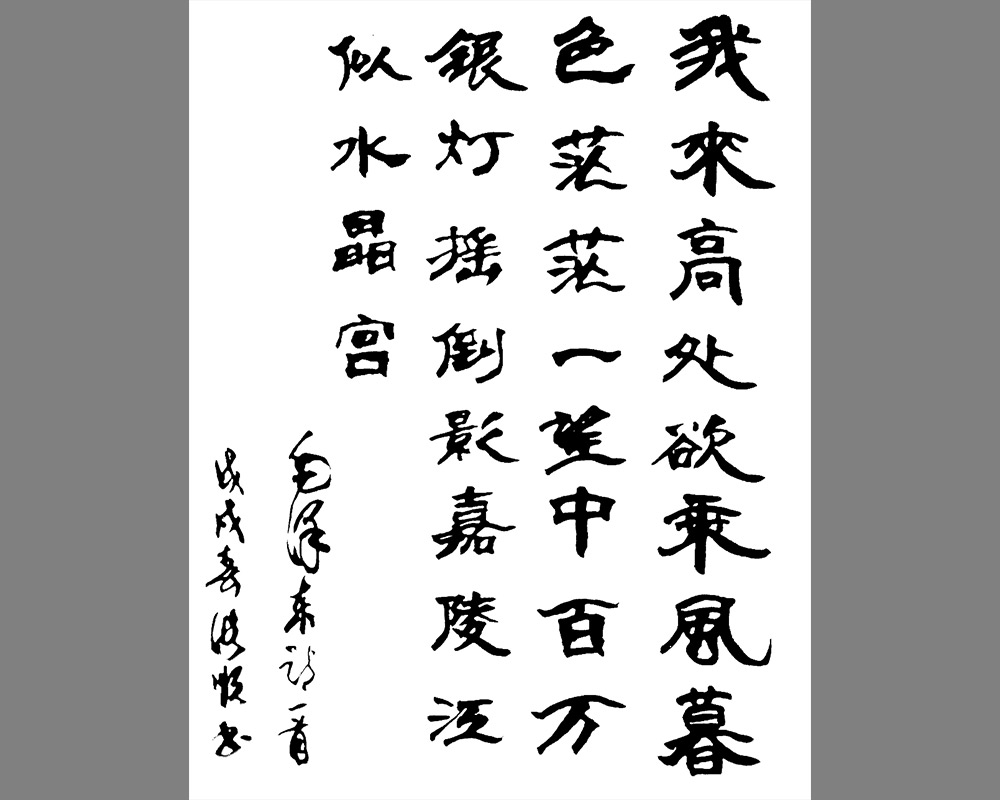 我來高处欲乘風暮
色茫茫一望中百万
銀灯摇倒影嘉陵江
似水晶宫
毛泽东诗一首
戊戌春 顺书